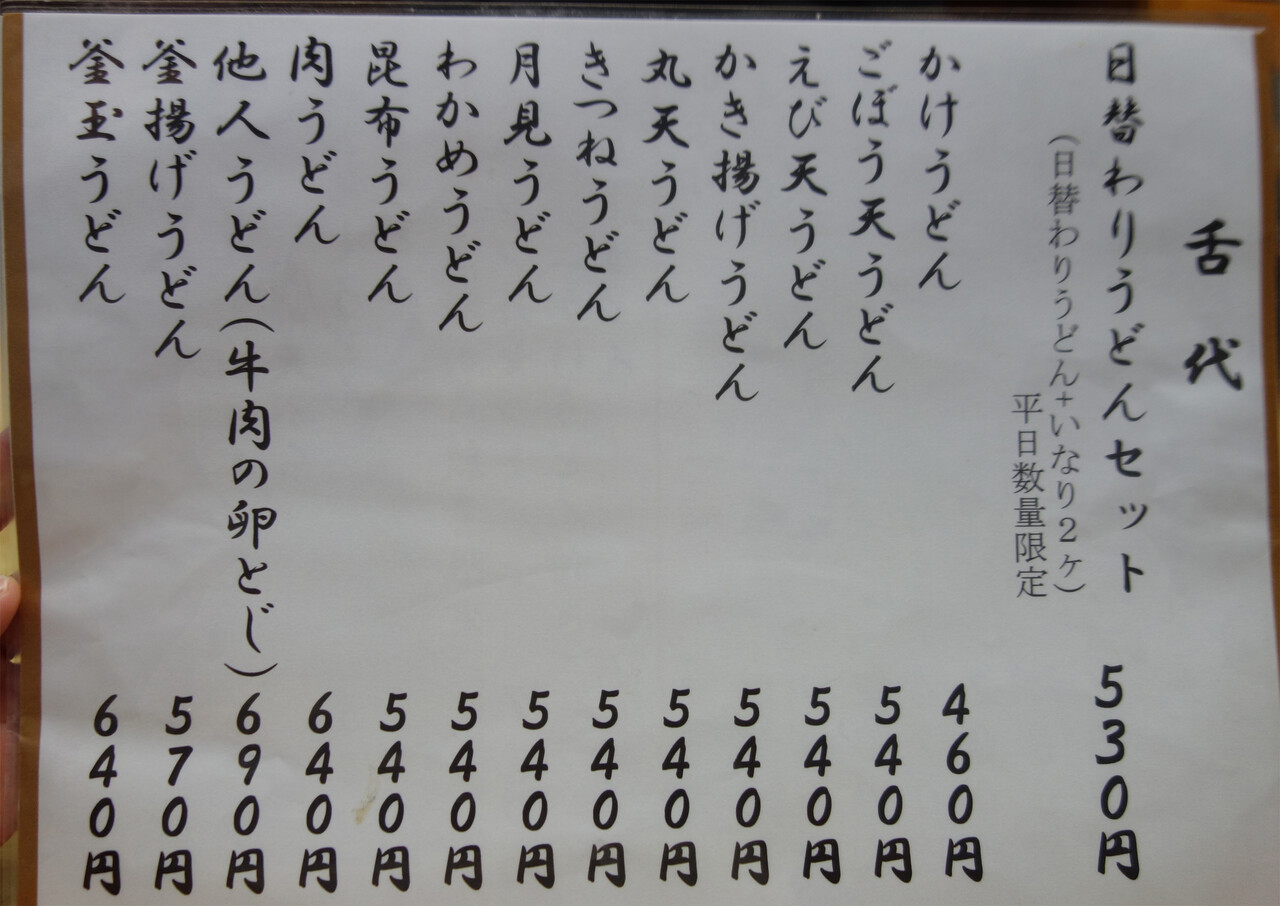 舌代
日替わりうどんセット 530円
(日替わりうどん+いなり2ヶ)
平日数量限定
かけうどん 460円
ごぼう天うどん 540円
えび天うどん 540円
かき揚げうどん 540円
丸天うどん 540円
きつねうどん 540円
月見うどん 540円
わかめうどん 540円
昆布うどん 540円
肉うどん 640円
他人うどん(牛肉の卵とじ) 690円
釜揚げうどん 570円
釜玉うどん 640円